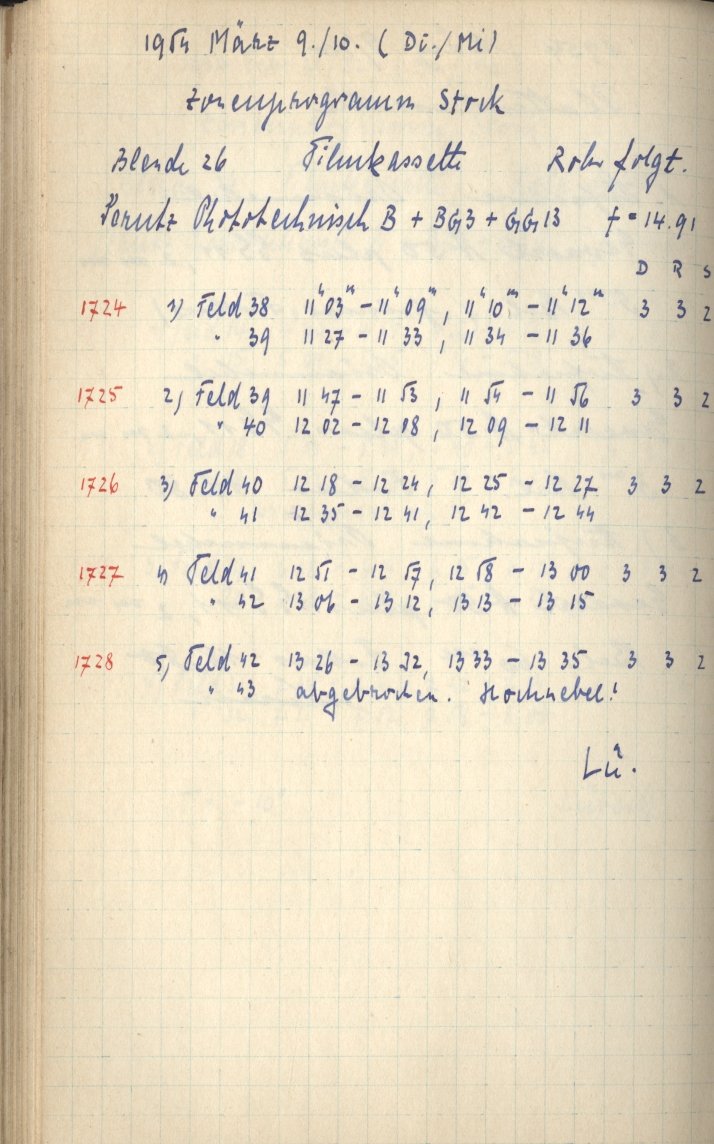 1954 März 9./10. (Di./Mi)
Zonenprogramm Stock
Blende 26 Filmkassette Rohr folgt.
Perutz Phototechnisch B + BG3 + GG13 f = 14.91
D R S
1724 1) Feld 38 11ʰ03ᵐ - 11ʰ09ᵐ, 11ʰ10ᵐ - 11ʰ12ᵐ 3 3 2
" 39 11 27 - 11 33, 11 34 - 11 36
1725 2) Feld 39 11 47 - 11 53, 11 54 - 11 56 3 3 2
" 40 12 02 - 12 08, 12 09 - 12 11
1726 3) Feld 40 12 18 - 12 24, 12 25 - 12 27 3 3 2
" 41 12 35 - 12 41, 12 42 - 12 44
1727 4) Feld 41 12 51 - 12 57, 12 58 - 13 00 3 3 2
" 42 13 06 - 13 12, 13 13 - 13 15
1728 5) Feld 42 13 26 - 13 32, 13 33 - 13 35 3 3 2
" 43 abgebrochen. Hochnebel!
Lü.